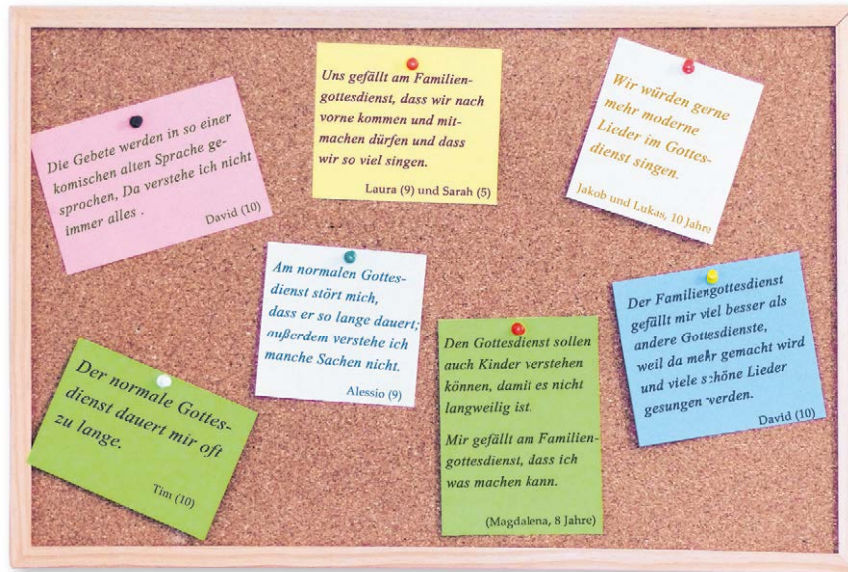 Die Gebete werden in so einer
komischen alten Sprache ge-
sprochen, Da verstehe ich nicht
immer alles .
David (10)
Uns gefällt am Familien-
gottesdienst, dass wir nach
vorne kommen und mit-
machen dürfen und dass
wir so viel singen.
Laura (9) und Sarah (5)
Wir würden gerne
mehr moderne
Lieder im Gottes-
dienst singen.
Jakob und Lukas, 10 Jahre
Am normalen Gottes-
dienst stört mich,
dass er so lange dauert;
außerdem verstehe ich
manche Sachen nicht.
Alessio (9)
Der Familiengottesdienst
gefällt mir viel besser als
andere Gottesdienste,
weil da mehr gemacht wird
und viele schöne Lieder
gesungen werden.
David (10)
Der normale Gottes-
dienst dauert mir oft
zu lange.
Tim (10)
Den Gottesdienst sollen
auch Kinder verstehen
können, damit es nicht
langweilig ist.
Mir gefällt am Familien-
gottesdienst, dass ich
was machen kann.
(Magdalena, 8 Jahre)